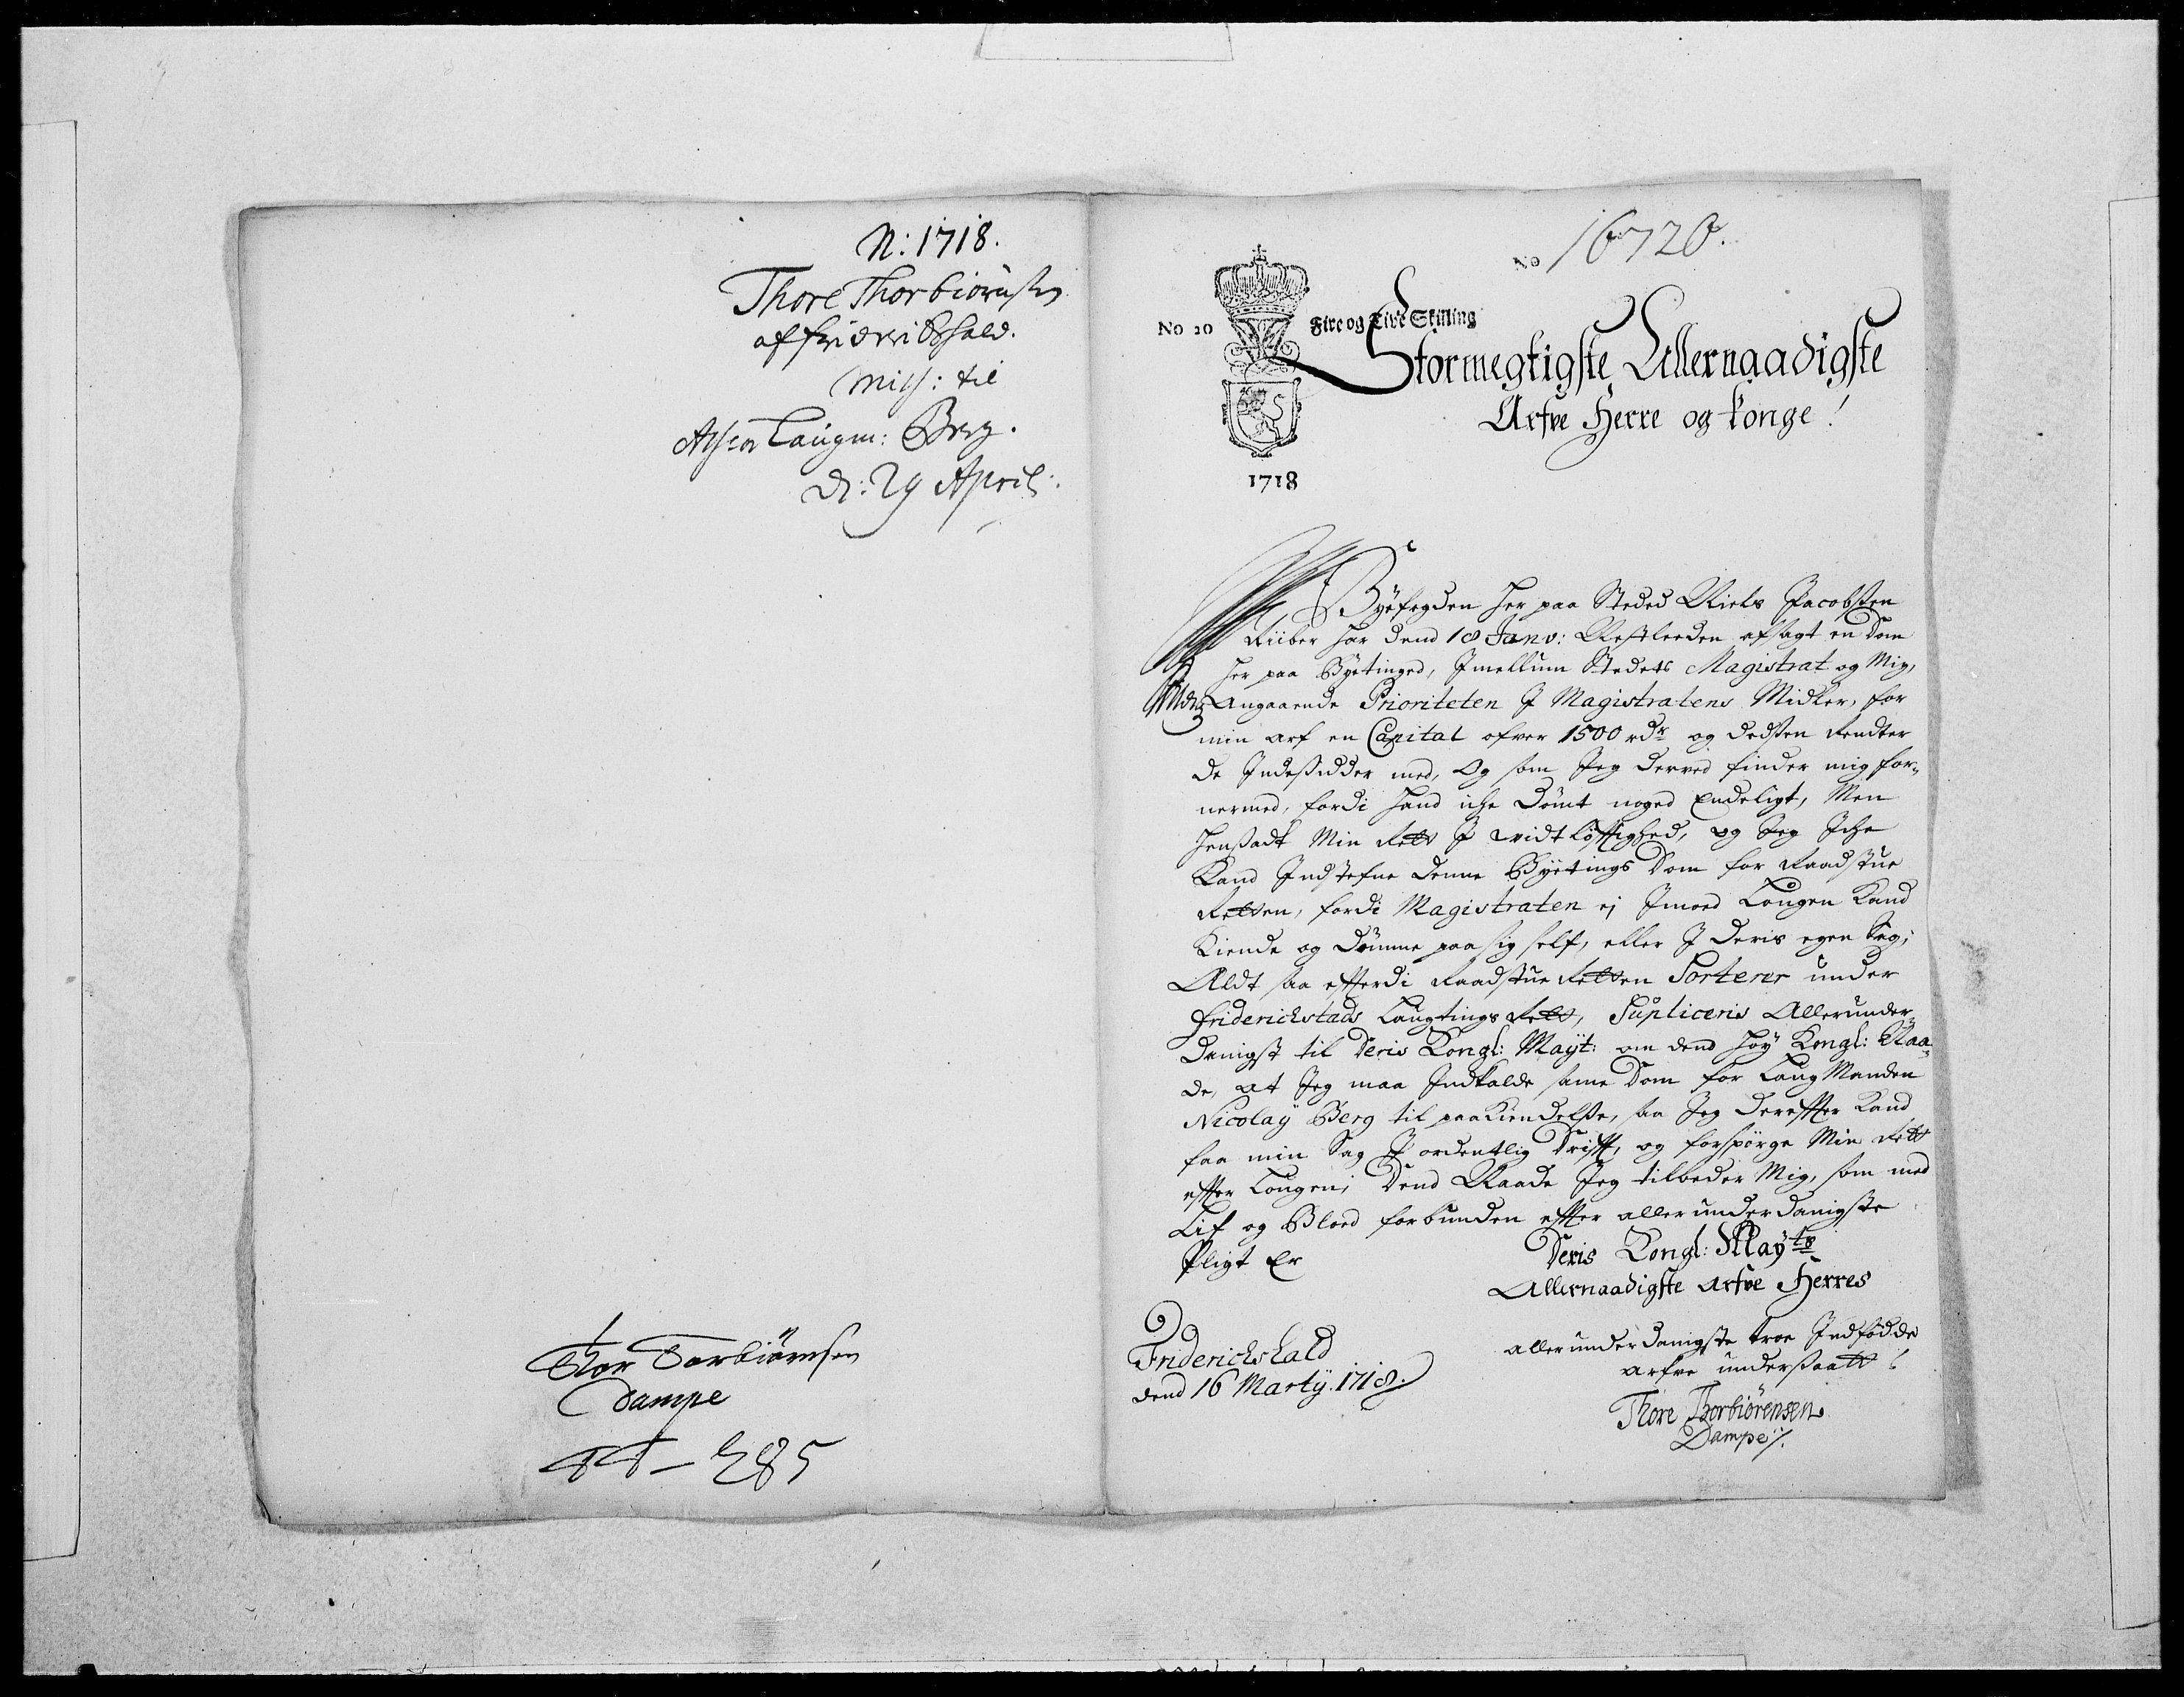 N: 1718.
Thore Thorbiörnsen
af Fridrikshald.
Miss: til
Assessor Laugm: Berg.
d: 29 April.
Thor Torbiörnsen
Dampe
285
No 16720.
No 20 Fire og Tive Skilling
1718
Stormegtigste Allernaadigste
Arfve Herre og Konge!
Byefogden her paa Steded Niels Jacobsen
Riiber har dend 18 Janv: Nestleeden afsagt en Dom
her paa Byetinged, Imellum Stedets Magistrat og Mig,
Angaaende Prioriteten I Magistratens Midler, for
min arf en Capital ofver 1500 rdr og dessen Rendter
de Indesidder med, Og som Jeg derved finder mig for-
nermed, fordi hand iche Dömt noged Endeligt, Men
hensadt Min Rett I vidtlöfftighed, og Jeg Iche
Kand Indstefne denne Byetings Dom for Raadstue
Retten, fordi Magistraten ej Imoed Lougen Kand
Kiende og Dömme paa sig self, eller I deris egen Sag;
Aldt saa efterdi Raadstue Retten Sorterer under
Friderichstads Laugtings Rett, Supliceris Allerunder-
danigst til Deris Kongl: Mayt: om dend høy Kongl: Naa-
de, at Jeg maa Indkalde same Dom for Laug Manden
Nicolay Berg til paakiendelse, saa Jeg derefter Kand
faa min Sag I ordentlig Drifft, og forspörge Min Rett
effter Lougen; Dend Naade Jeg tilbeder Mig, som med
Lif og Bloed forbunden effter allerunderdanigste
Pligt Er
Deris Kongl: Mayts
Allernaadigste Arfve Herres
Friderichshald
dend 16 Martij. 1718.
allerunderdanigste troe Indfödde
arfve undersaatt
Thore Thorbiörensen
Dampe